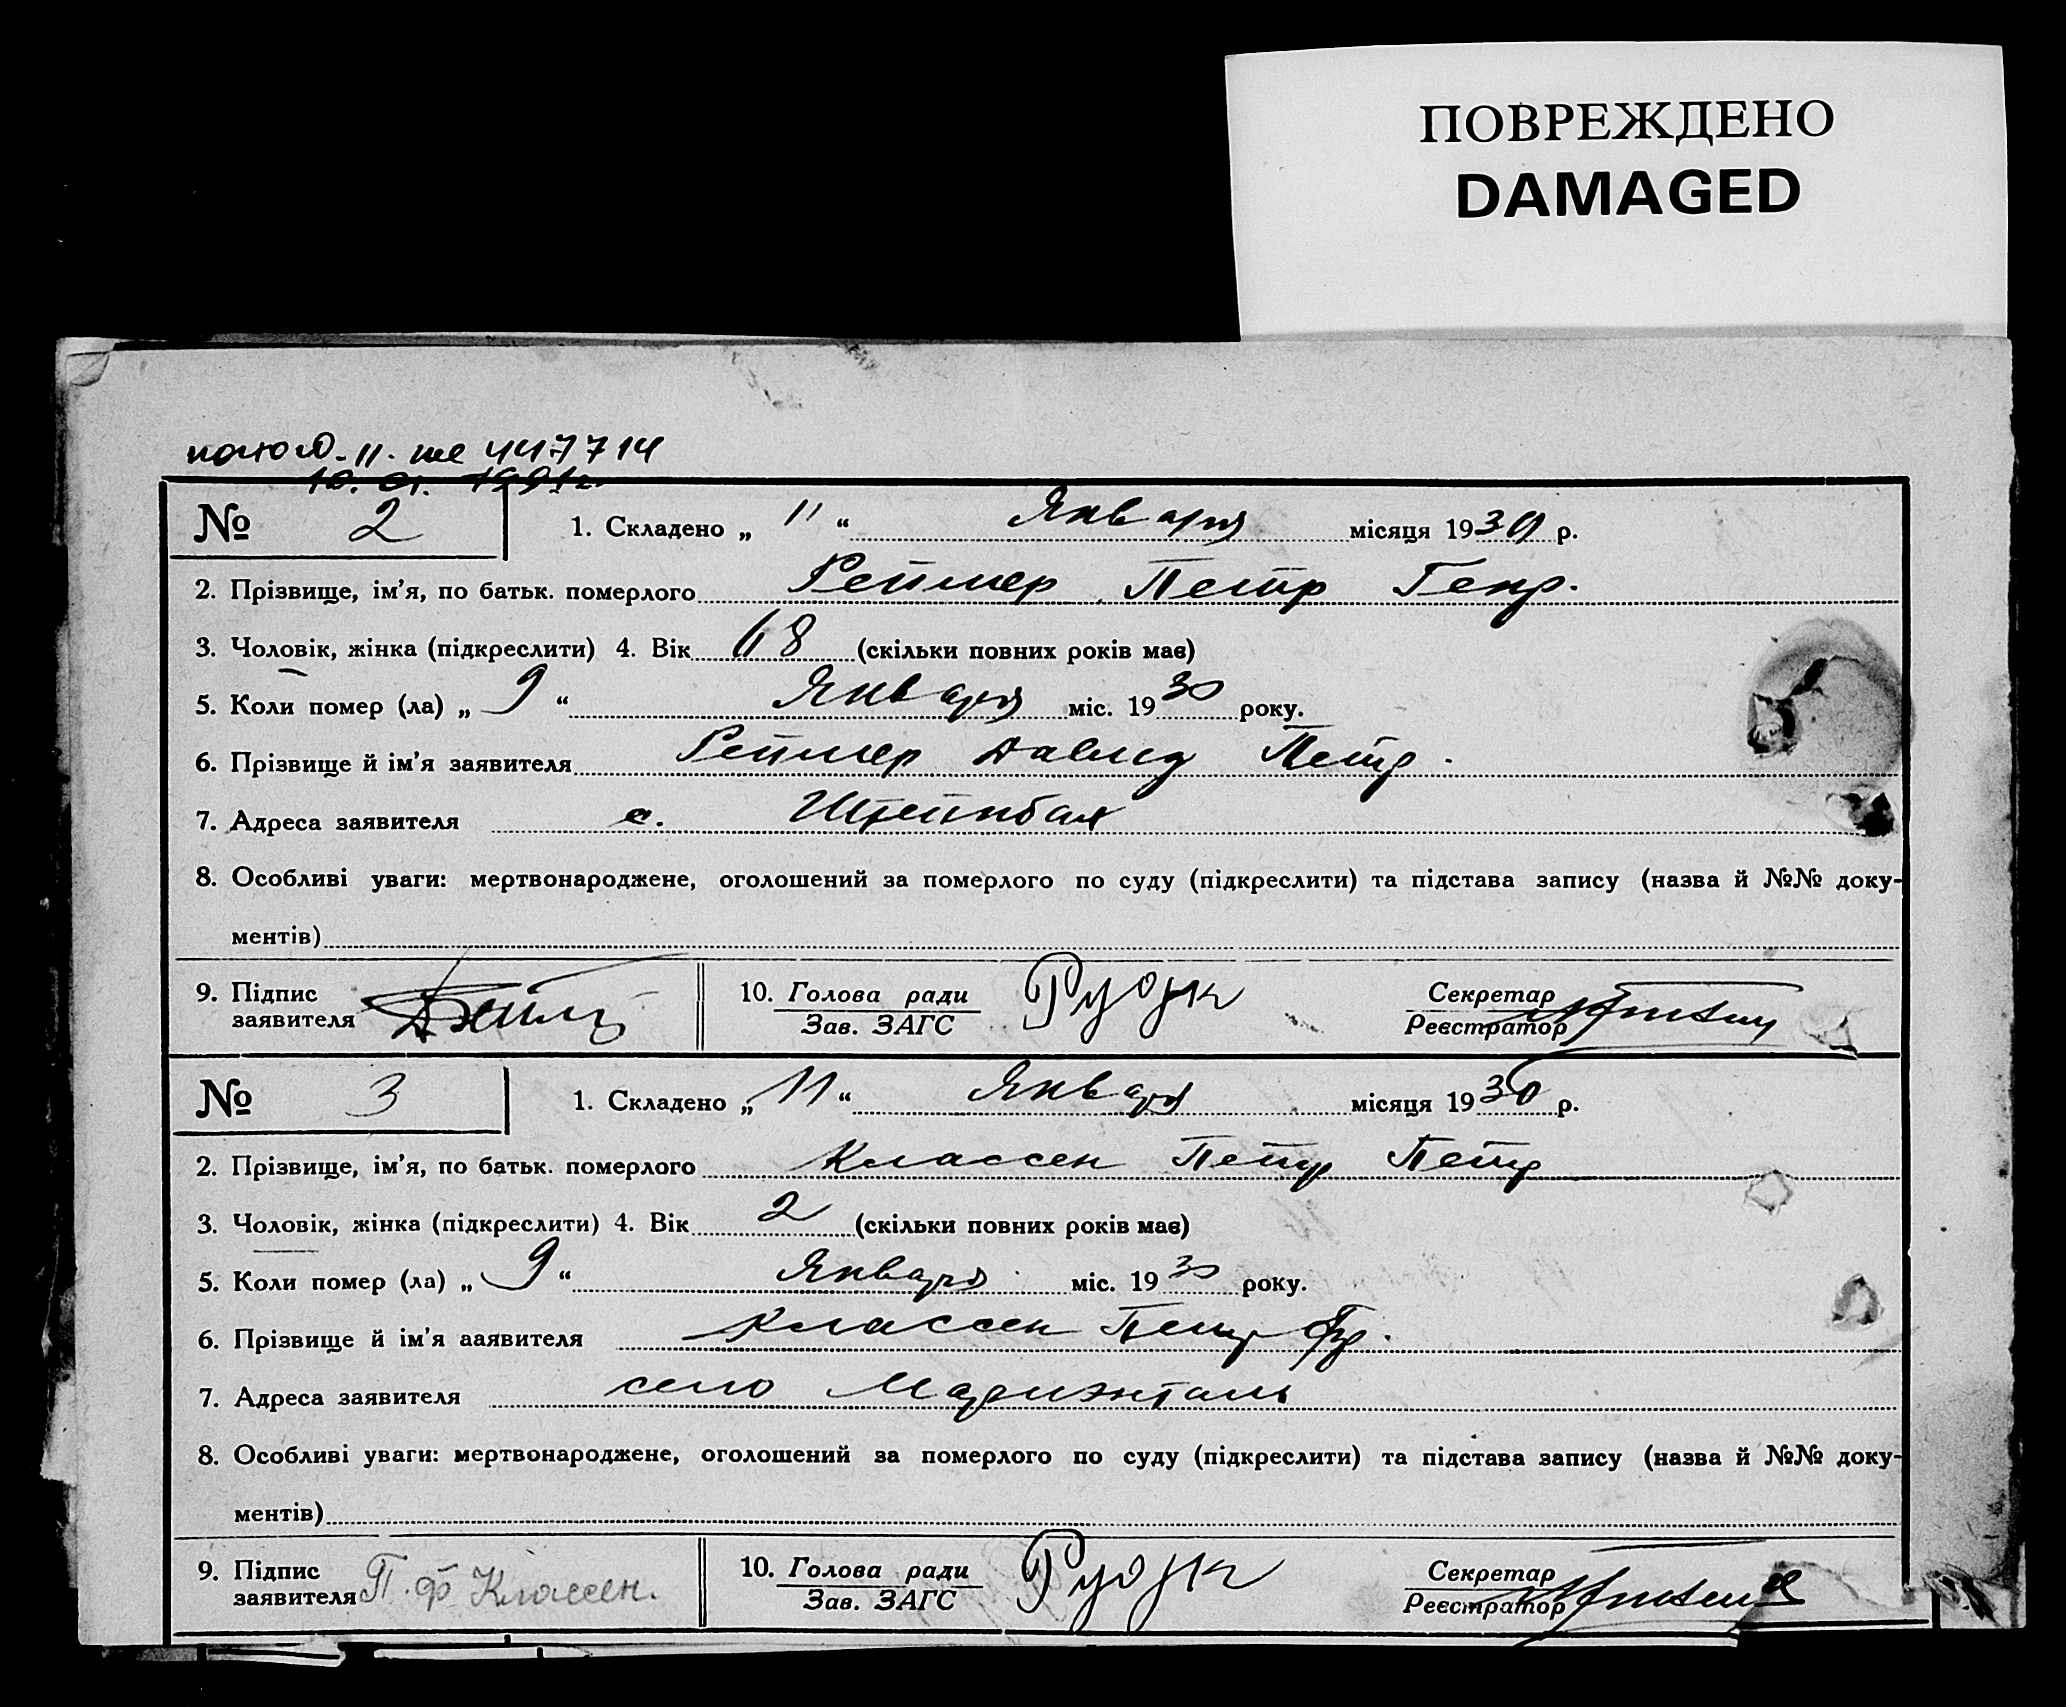 ПОВРЕЖДЕНО
DAMAGED
II. 447714
10. 01. 1991г.
№ 2 1. Складено „ 11 “ Января місяця 1930 р.
2. Прізвище, ім’я, по батьк. померлого Реймер Петр Генр.
3. Чоловік, жінка (підкреслити) 4. Вік 68 (скільки повних років має)
5. Коли помер (ла) „ 9 “ Января міс. 1930 року.
6. Прізвище й ім’я заявителя Реймер Давид Петр.
7. Адреса заявителя с. Штейнбах
8. Особливі уваги: мертвонароджене, оголошений за померлого по суду (підкреслити) та підстава запису (назва й №№ доку-
ментів)
9. Підпис заявителя 10. Голова ради Зав. ЗАГС Секретар Реєстратор
№ 3 1. Складено „ 11 “ Января місяця 1930 р.
2. Прізвище, ім’я, по батьк. померлого Классен Петр Петр
3. Чоловік, жінка (підкреслити) 4. Вік 2 (скільки повних років має)
5. Коли помер (ла) „ 9 “ Января міс. 1930 року.
6. Прізвище й ім’я ааявителя Классен Петр Фр.
7. Адреса заявителя село Мариэнталь
8. Особливі уваги: мертвонароджене, оголошений за померлого по суду (підкреслити) та підстава запису (назва й №№ доку-
ментів)
9. Підпис заявителя П. Ф Классен. 10. Голова ради Зав. ЗАГС Секретар Реєстратор